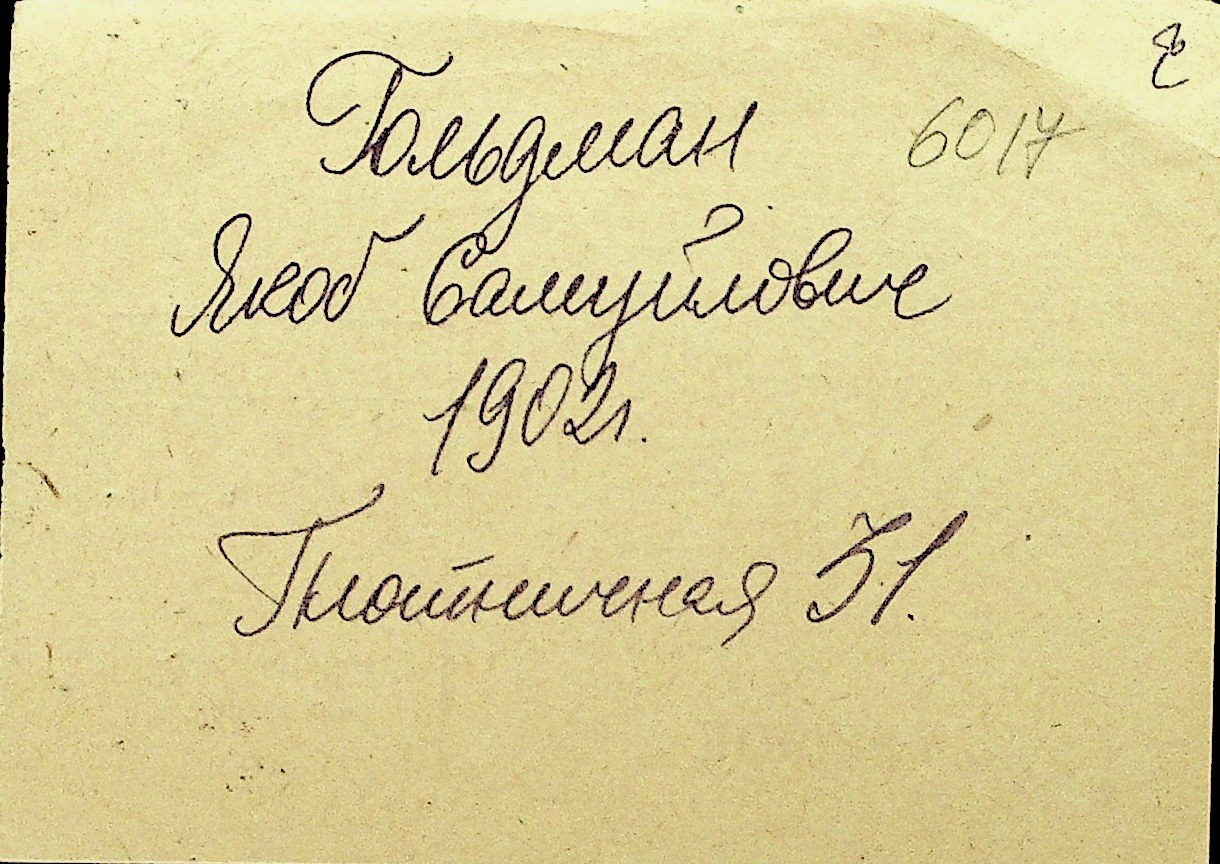 Гольдман 6017
Якоб Самуйлович
1902г.
Плотничная 31.